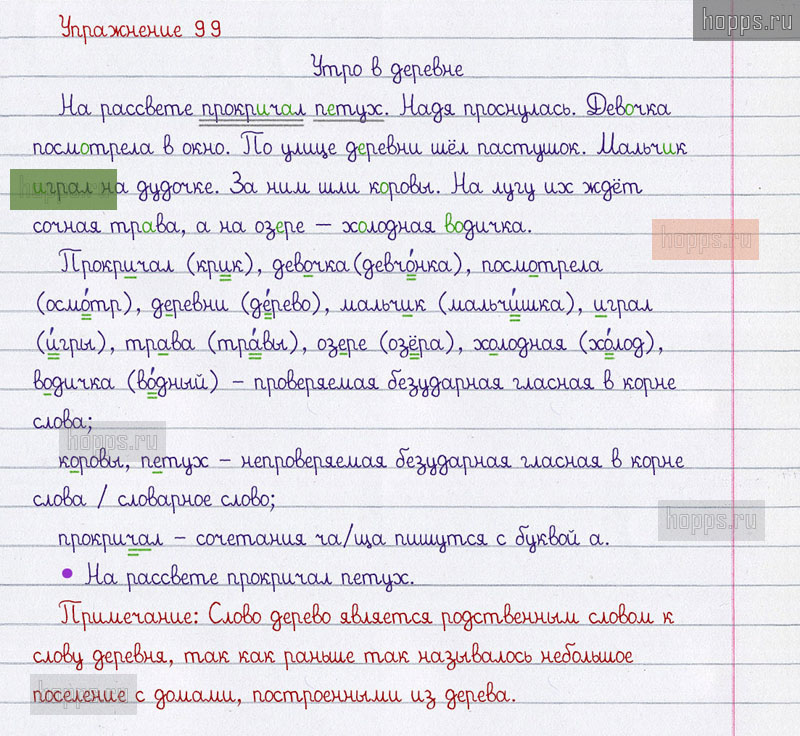 hopps.ru
Упражнение 99
Утро в деревне
На рассвете прокричал петух. Надя проснулась. Девочка
посмотрела в окно. По улице деревни шёл пастушок. Мальчик
играл на дудочке. За ним шли коровы. На лугу их ждёт
сочная трава, а на озере – холодная водичка.
hopps.ru
Прокричал (крик), девочка(девчо́нка), посмотрела
(осмо́тр), деревни (де́рево), мальчик (мальчи́шка), играл
(и́гры), трава (тра́вы), озере (озёра), холодная (хо́лод),
водичка (во́дный) – проверяемая безударная гласная в корне
слова;
hopps.ru
коровы, петух – непроверяемая безударная гласная в корне
слова / словарное слово;
hopps.ru
прокричал – сочетания ча/ща пишутся с буквой а.
• На рассвете прокричал петух.
Примечание: Слово дерево является родственным словом к
слову деревня, так как раньше так называлось небольшое
поселение с домами, построенными из дерева.